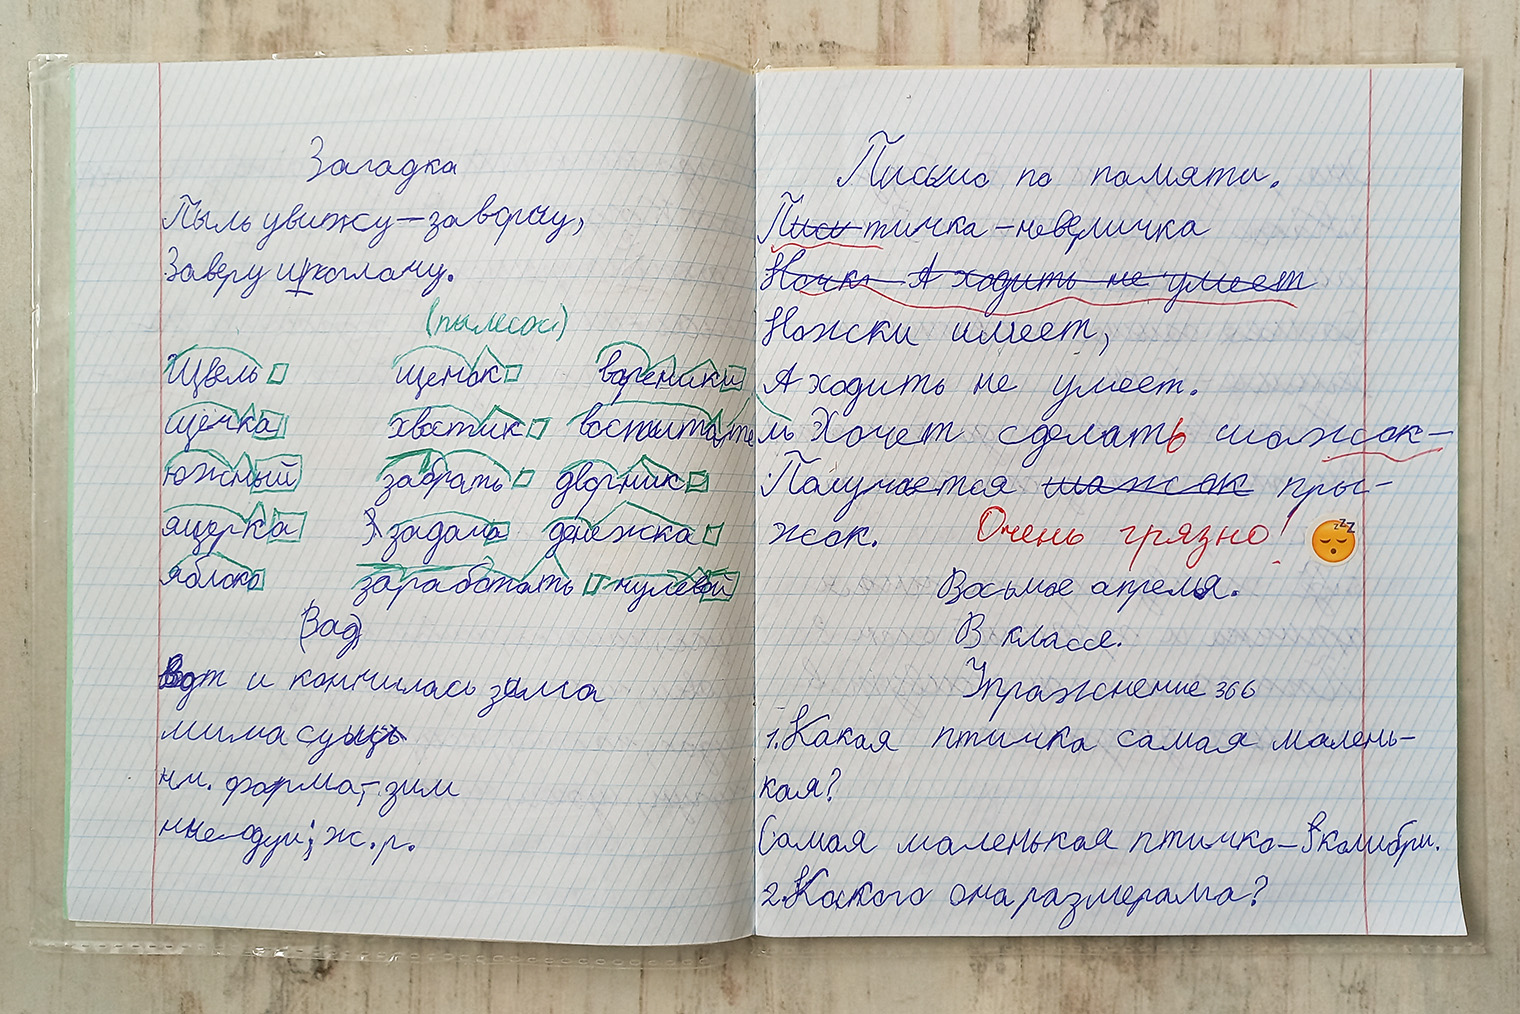 Загадка
Пыль увижу – заворчу,
Заверчу и проглочу.
(пылесос)
Щвель щенок вареники
щечка хвостик воспитатель
южный забрать дворник
ящерка задача денежка
яблоко заработать нулевой
Зад
Вот и кончилась зима
зима сущ
нч. форма, – зим
мне – одуш; ж. р.
Письмо по памяти.
Птичка – невеличка
А ходить не умеет
Ножки имеет,
А ходить не умеет.
Хочет сделать шажок –
Получается шажок пры-
жок. Очень грязно!
Восьмое апреля.
В классе.
Упражнение 366
1. Какая птичка самая малень-
кая?
Самая маленькая птичка – колибри.
2. Какого она размерама?